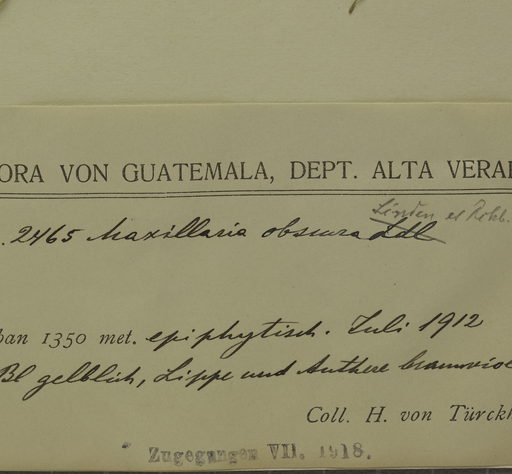 ORA VON GUATEMALA, DEPT. ALTA VERAP
Linden et Rchb.
. 2465 Maxillaria obscura Ldl
ban 1350 met. epiphytisch. Juli 1912
Bl gelblich, Lippe und Anthere braunviol
Coll. H. von Türckh
Zugegangen VII. 1918.